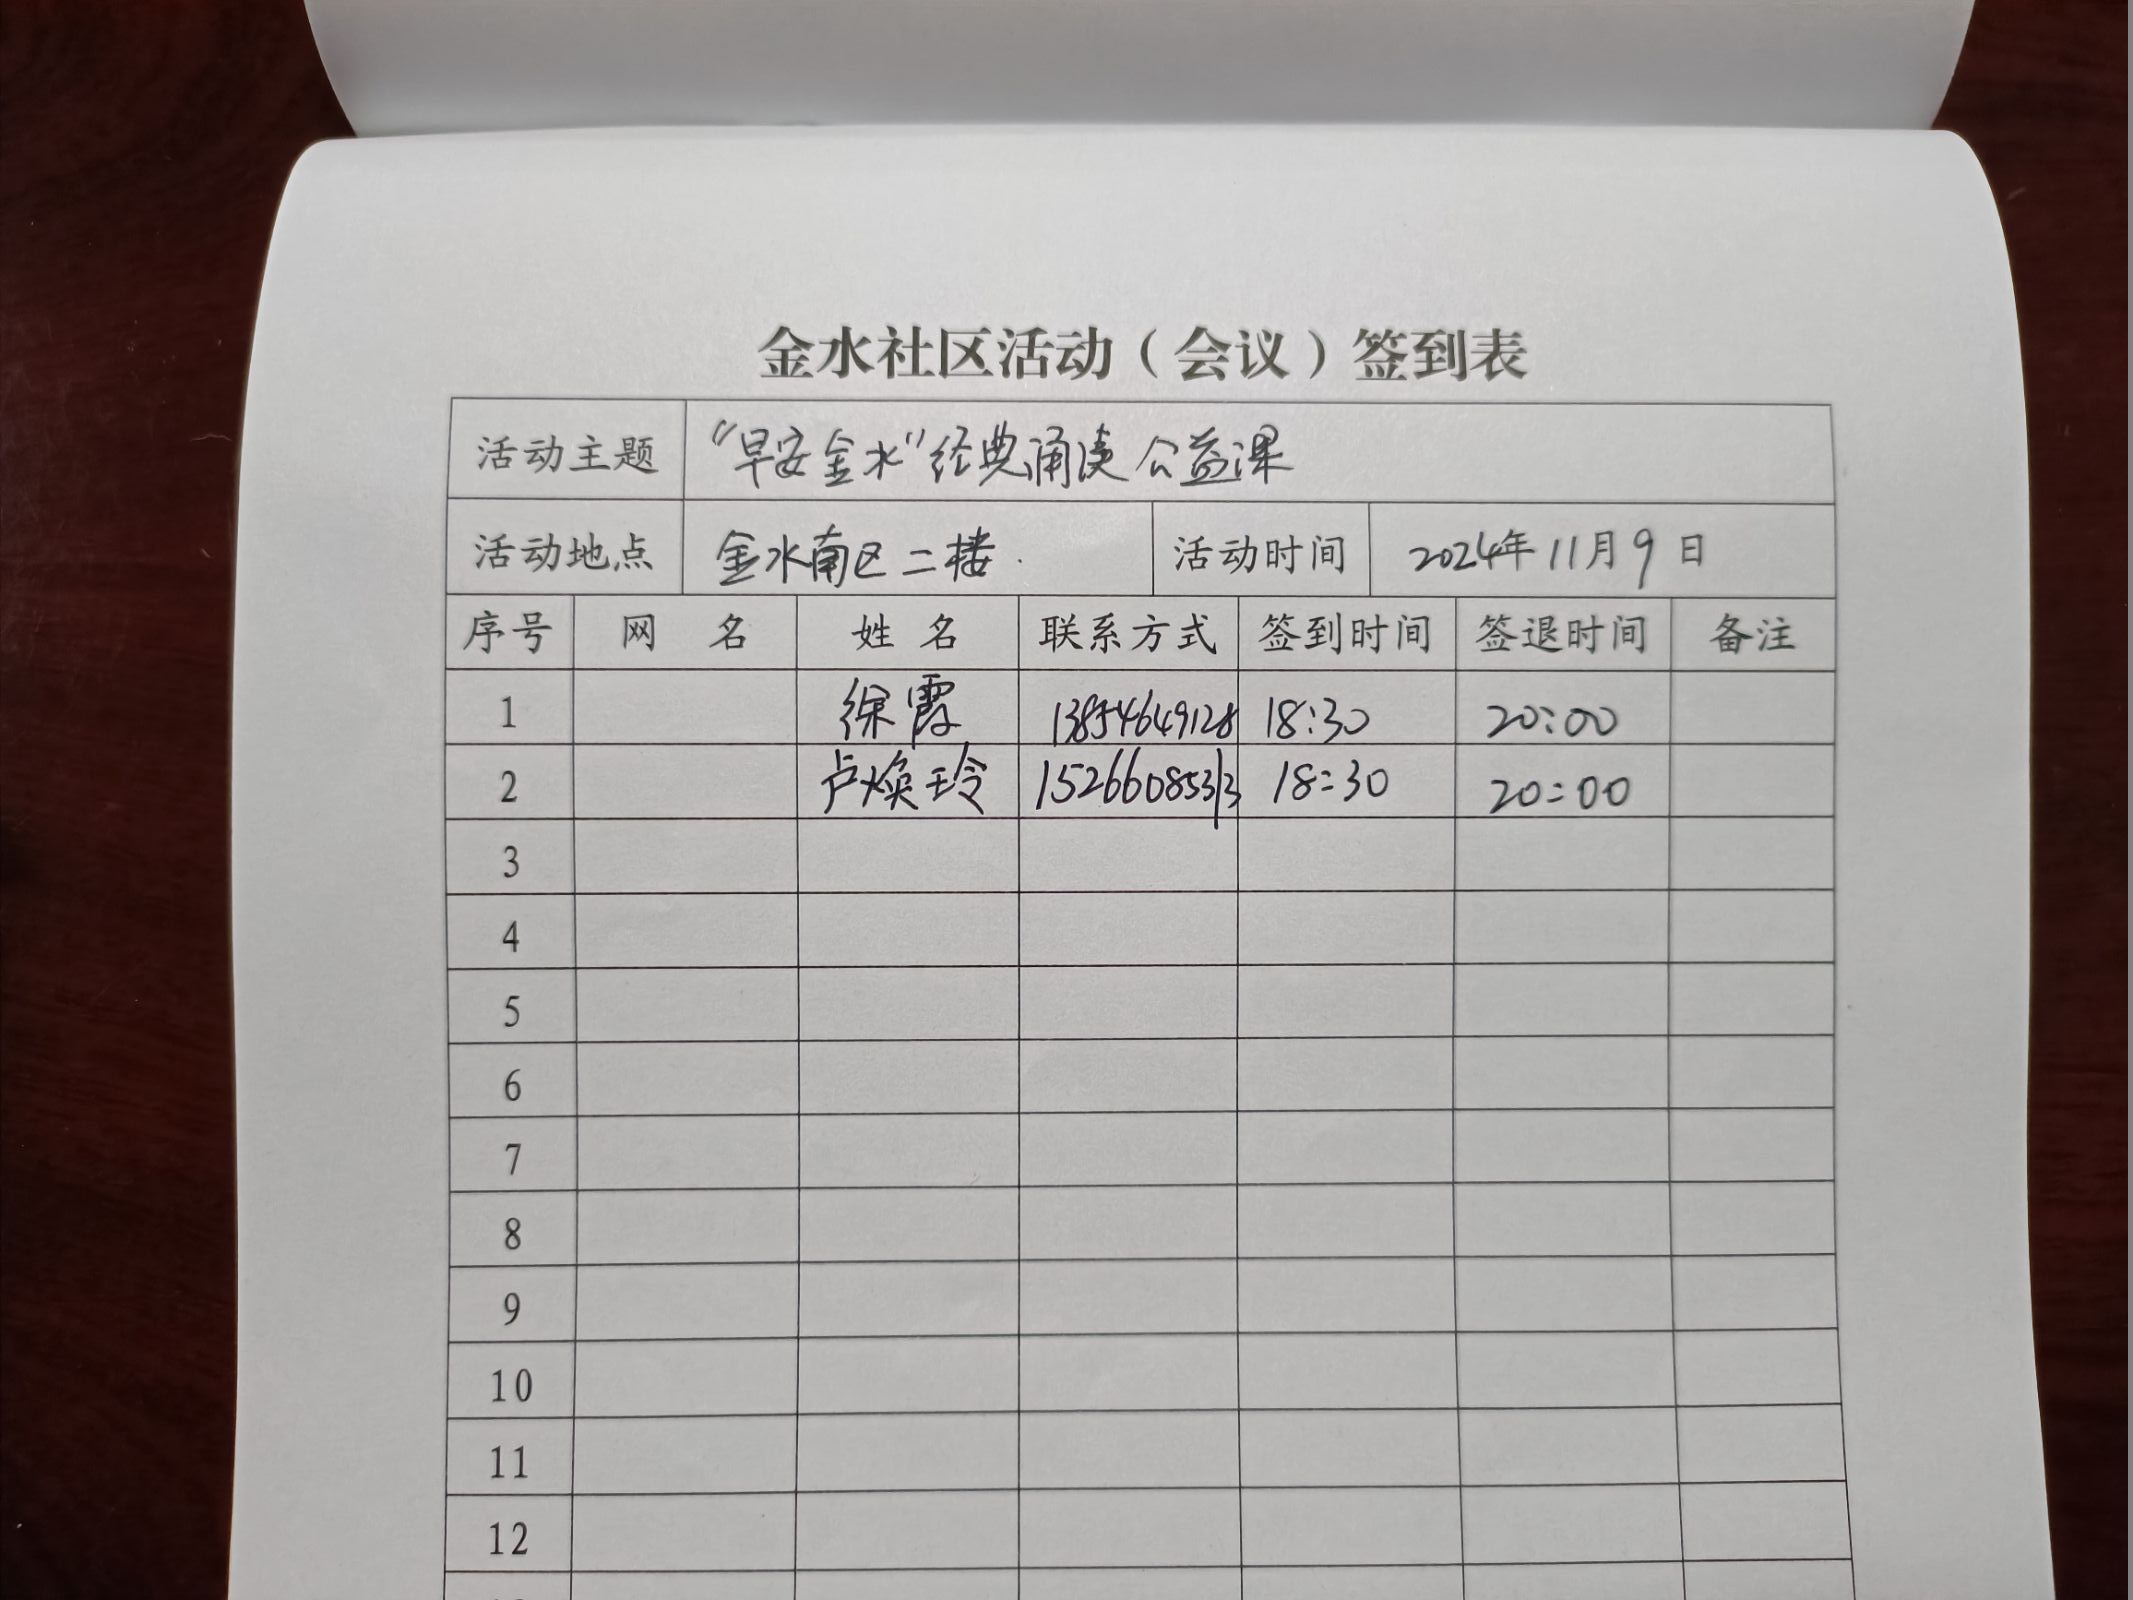 金水社区活动（会议）签到表
活动主题 "早安金水"经典诵读公益课
活动地点 金水南区二楼 活动时间 2024年11月9日
序号 网 名 姓 名 联系方式 签到时间 签退时间 备注
1 徐霞 13854649128 18:30 20:00
2 卢焕玲 15266085313 18:30 20:00
3
4
5
6
7
8
9
10
11
12